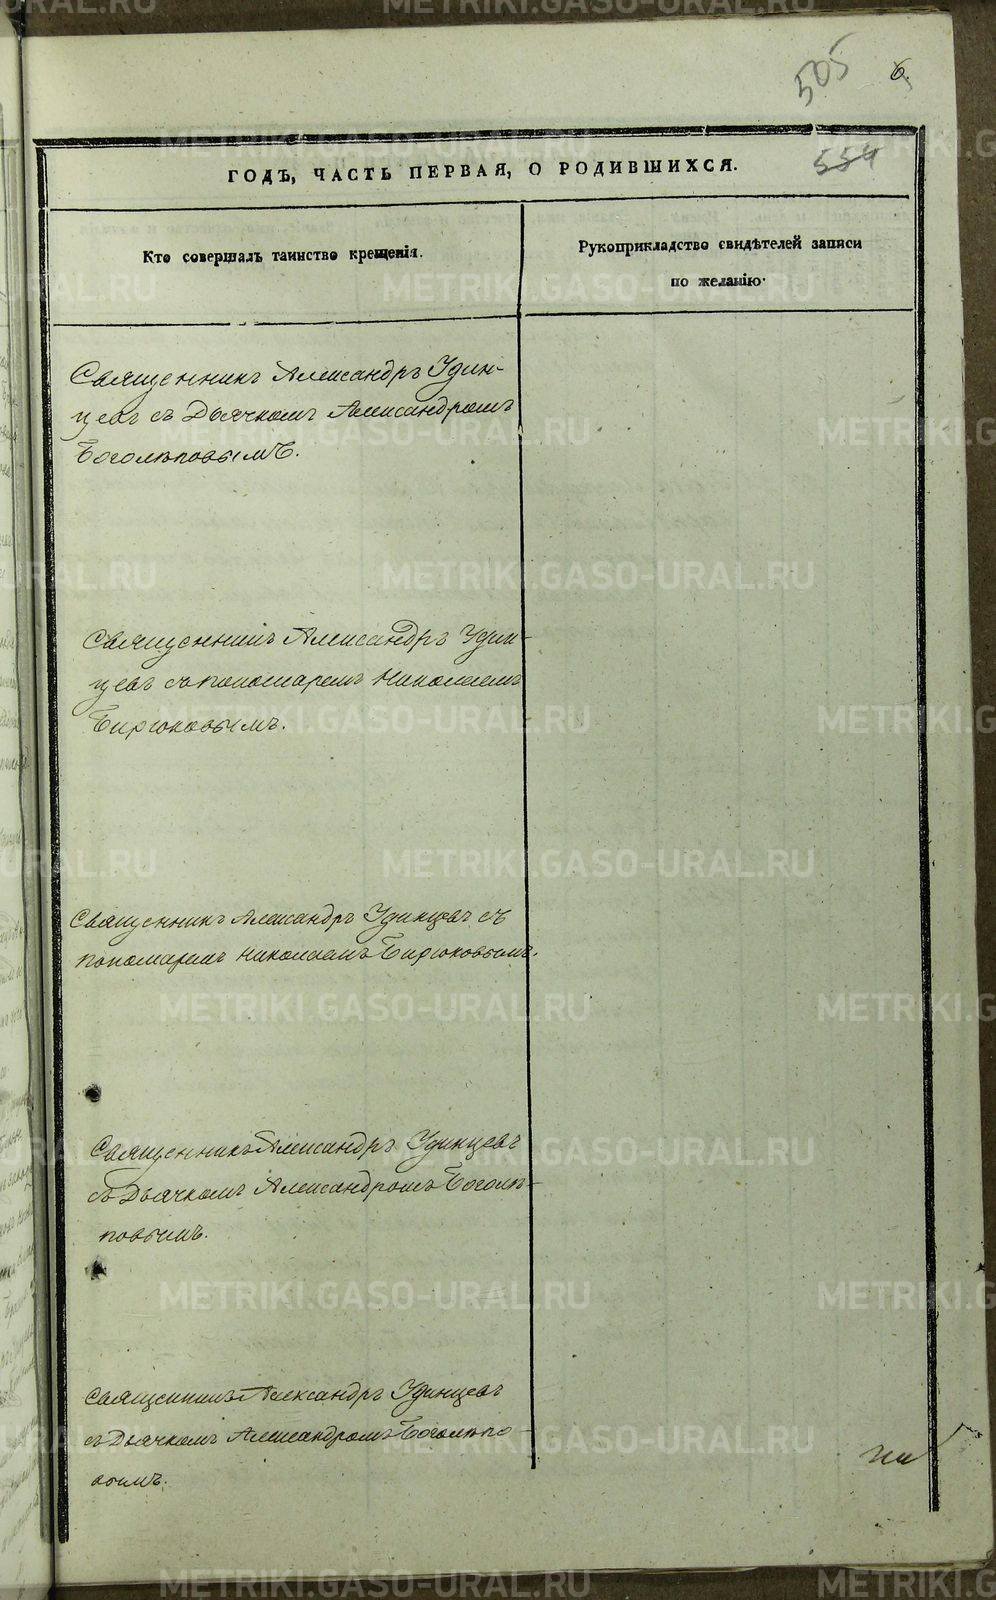 METRIKI.GASO-URAL.RU
505
6.
554
ГОДЪ, ЧАСТЬ ПЕРВАЯ, О РОДИВШИХСЯ.
Кто совершалъ таинство крещенія.
Рукоприкладство свидѣтелей записи
по желанію.
Священникъ Александръ Удин-
цевъ съ Дьячкомъ Александромъ
Боголѣповымъ.
Священникъ Александръ Удин-
цевъ съ пономаремъ Николаемъ
Бирюковымъ.
Священникъ Александръ Удинцевъ съ
пономаремъ Николаемъ Бирюковымъ.
Священникъ Александръ Удинцевъ
съ Дьячкомъ Александромъ Боголѣ-
повымъ.
Священникъ Александръ Удинцевъ
съ Дьячкомъ Александромъ Боголѣпо-
вымъ.